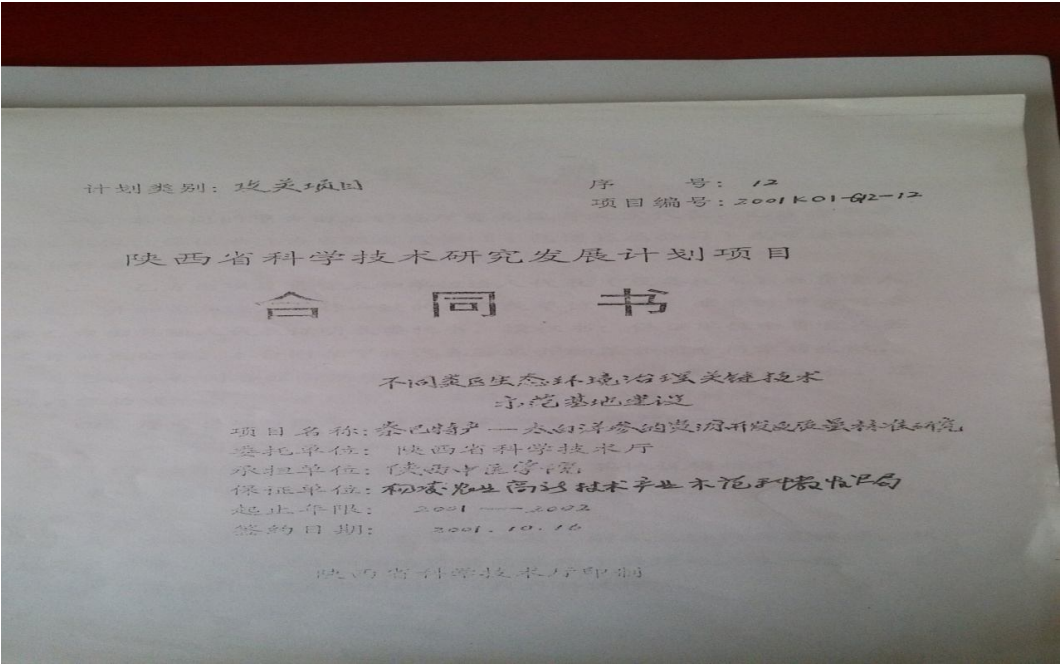 计划类别: 攻关项目
序 号: 12
项目编号: 2001K01-G12-12
陕西省科学技术研究发展计划项目
合 同 书
不同类区生态环境治理关键技术
示范基地建设
项目名称: 秦巴特产—太白洋参的资源开发及质量标准研究
委托单位: 陕西省科学技术厅
承担单位: 陕西中医学院
保证单位: 杨凌农业高新技术产业示范区科教发展局
起止年限: 2001——2002
签约日期: 2001.10.16
陕西省科学技术厅印制